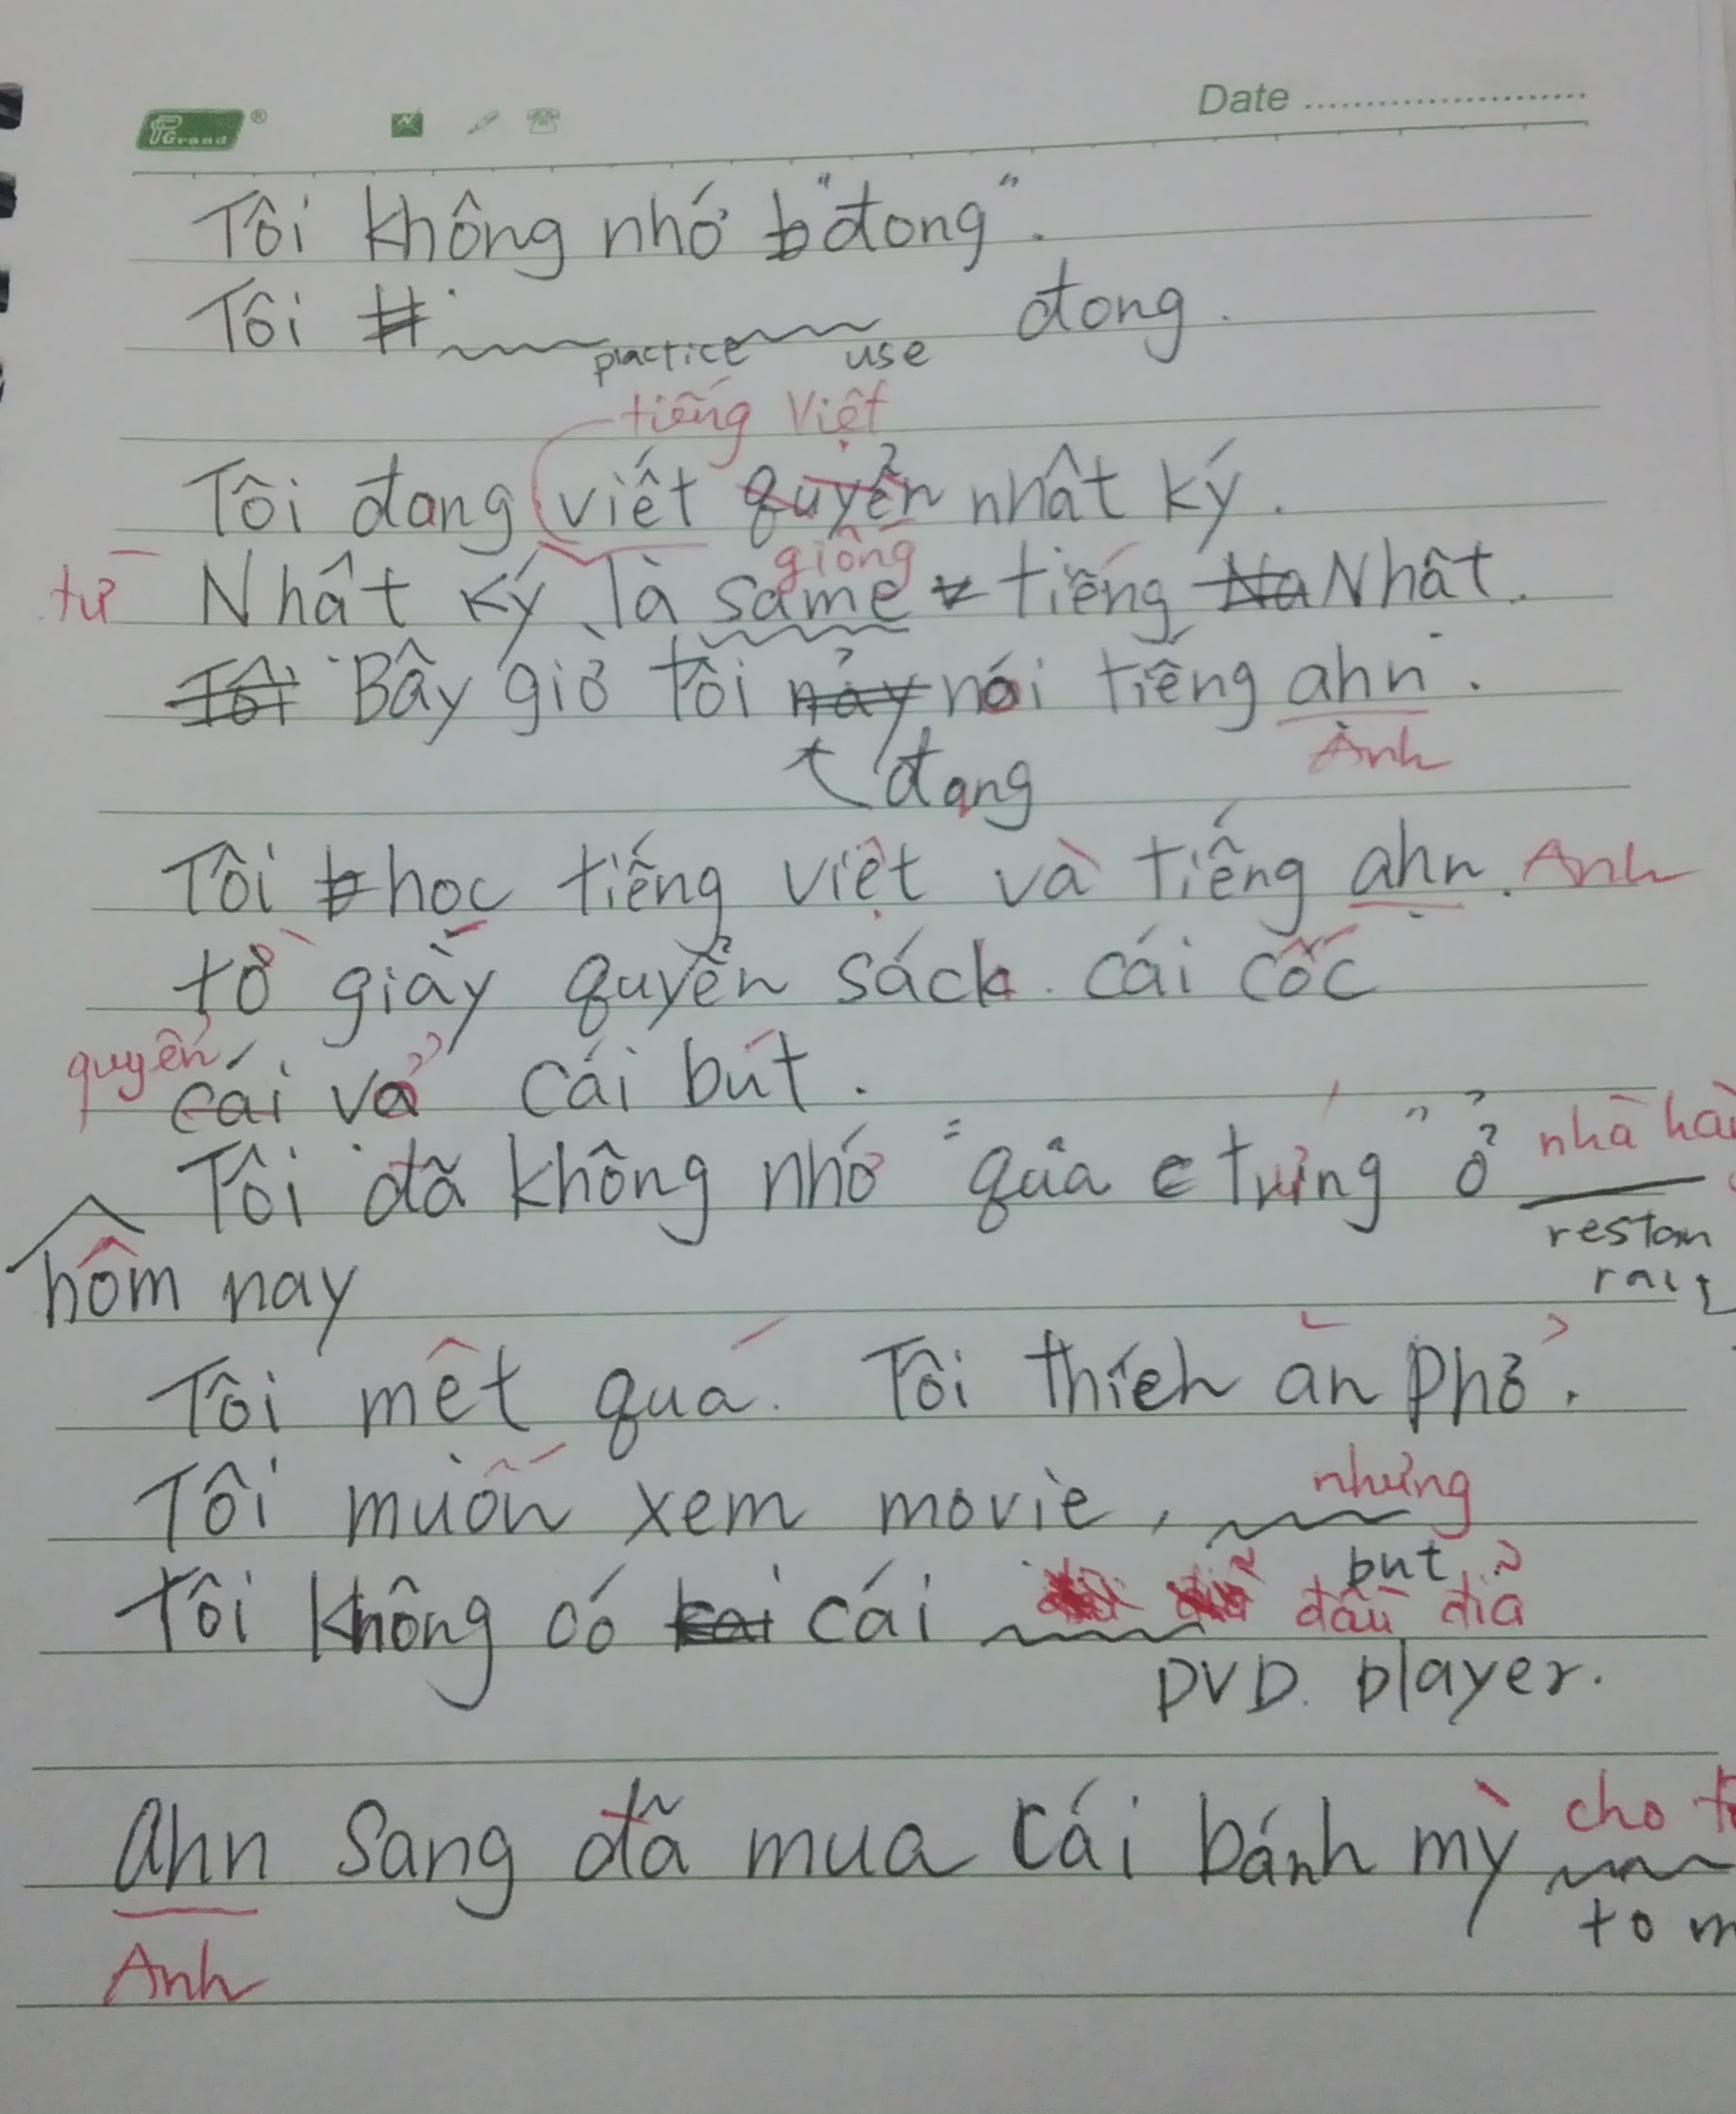 PGrand ® Date
Tôi không nhớ "đong".
Tôi đong.
practice use
tiếng Việt
Tôi đang viết quyển nhât ký.
giống
từ Nhât ký là same tiếng Nhât.
Tôi Bây giờ tôi này nói tiếng ahn.
đang Anh
Tôi học tiếng việt và tiếng ahn. Anh
tờ giấy quyển sách. cái cốc
quyển
cái vở cái bút.
Tôi đã không nhớ "quả trứng" ở nhà hà
restau
hôm nay
Tôi mệt quá. Tôi thích ăn phở.
nhưng
Tôi muốn xem movie,
but
Tôi không có cái đầu đĩa
DVD player.
ahn Sang đã mua cái bánh mỳ cho
to m
Anh